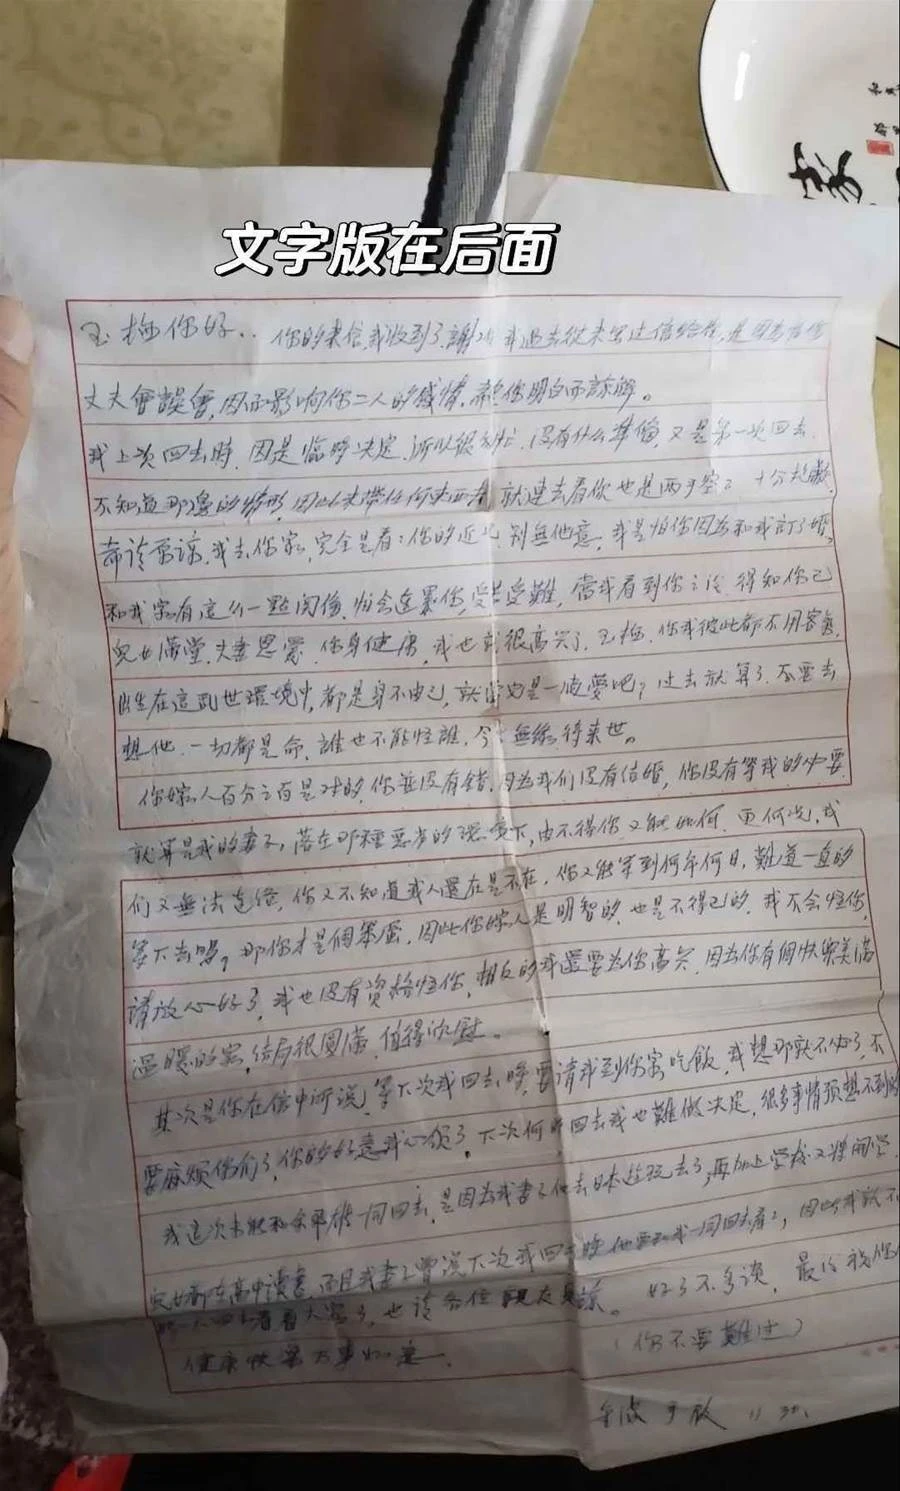 文字版在后面
玉梅你好.. 你的来信我收到了,謝謝 我过去從来没写过信給你,是因為怕你
丈夫會誤會,因而影响你二人的感情,希你明白而諒解。
我上次回去時,因是臨時决定,所以很匆忙,没有什么準備,又是第一次回去,
不知道那邊的情形,因此未带任何東西 就連去看你也是两手空空 十分抱歉,
希該原諒,我去你家,完全是看看你的近况,别無他意,我是怕你因為和我訂了婚,
和我家有這么一點関係,怕会連累你,受苦受難,當我看到你之后,得知你已
兒女滿堂,夫妻恩愛,你身健康,我也就很高兴了,玉梅,你我彼此都不用客氣,
出生在這乱世環境中,都是身不由己,就當 是一 愛吧?过去就算了,不要去
想他,一切都是命,誰也不能怪誰,今生無缘待来世。
你嫁人百分之百是对的,你並没有錯,因為我们没有结婚,你没有等我的必要
就算是我的妻子,落在那種惡劣的環境下,由不得你又能如何,更何况,我
们又無法連絡,你又不知道我人還在是不在,你又能等到何年何日,難道一直的
等下去嗎?那你才是個笨蛋,因此你嫁人是明智的,也是不得已的,我不会怪你,
請放心好了,我也没有資格怪你,相反的我還要為你高兴,因為你有個快樂美滿
溫暖的家,结局很圓滿,值得欣慰。
其次是你在信中所说,等下次我回去時,要請我到你家吃飯,我想那就不必了,不
要麻烦你们了,你的好意我心领了,下次何時回去我也難做决定,很多事情预想不到的
我這次未能和 一同回去,是因為我妻子他去日本遊玩去了,再加上学校又将開学,
兒女都在高中讀書,而且我妻子曾说下次我回去時他要和我一同回去看看,因此我就不
一人回去看看大家了,也请各位親友見諒。 好了不多谈, 最后祝你
健康快樂万事如意. (你不要難过)
手啟 11 30.